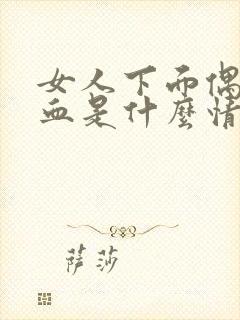 女人下面偶
血是什麼情
萨莎